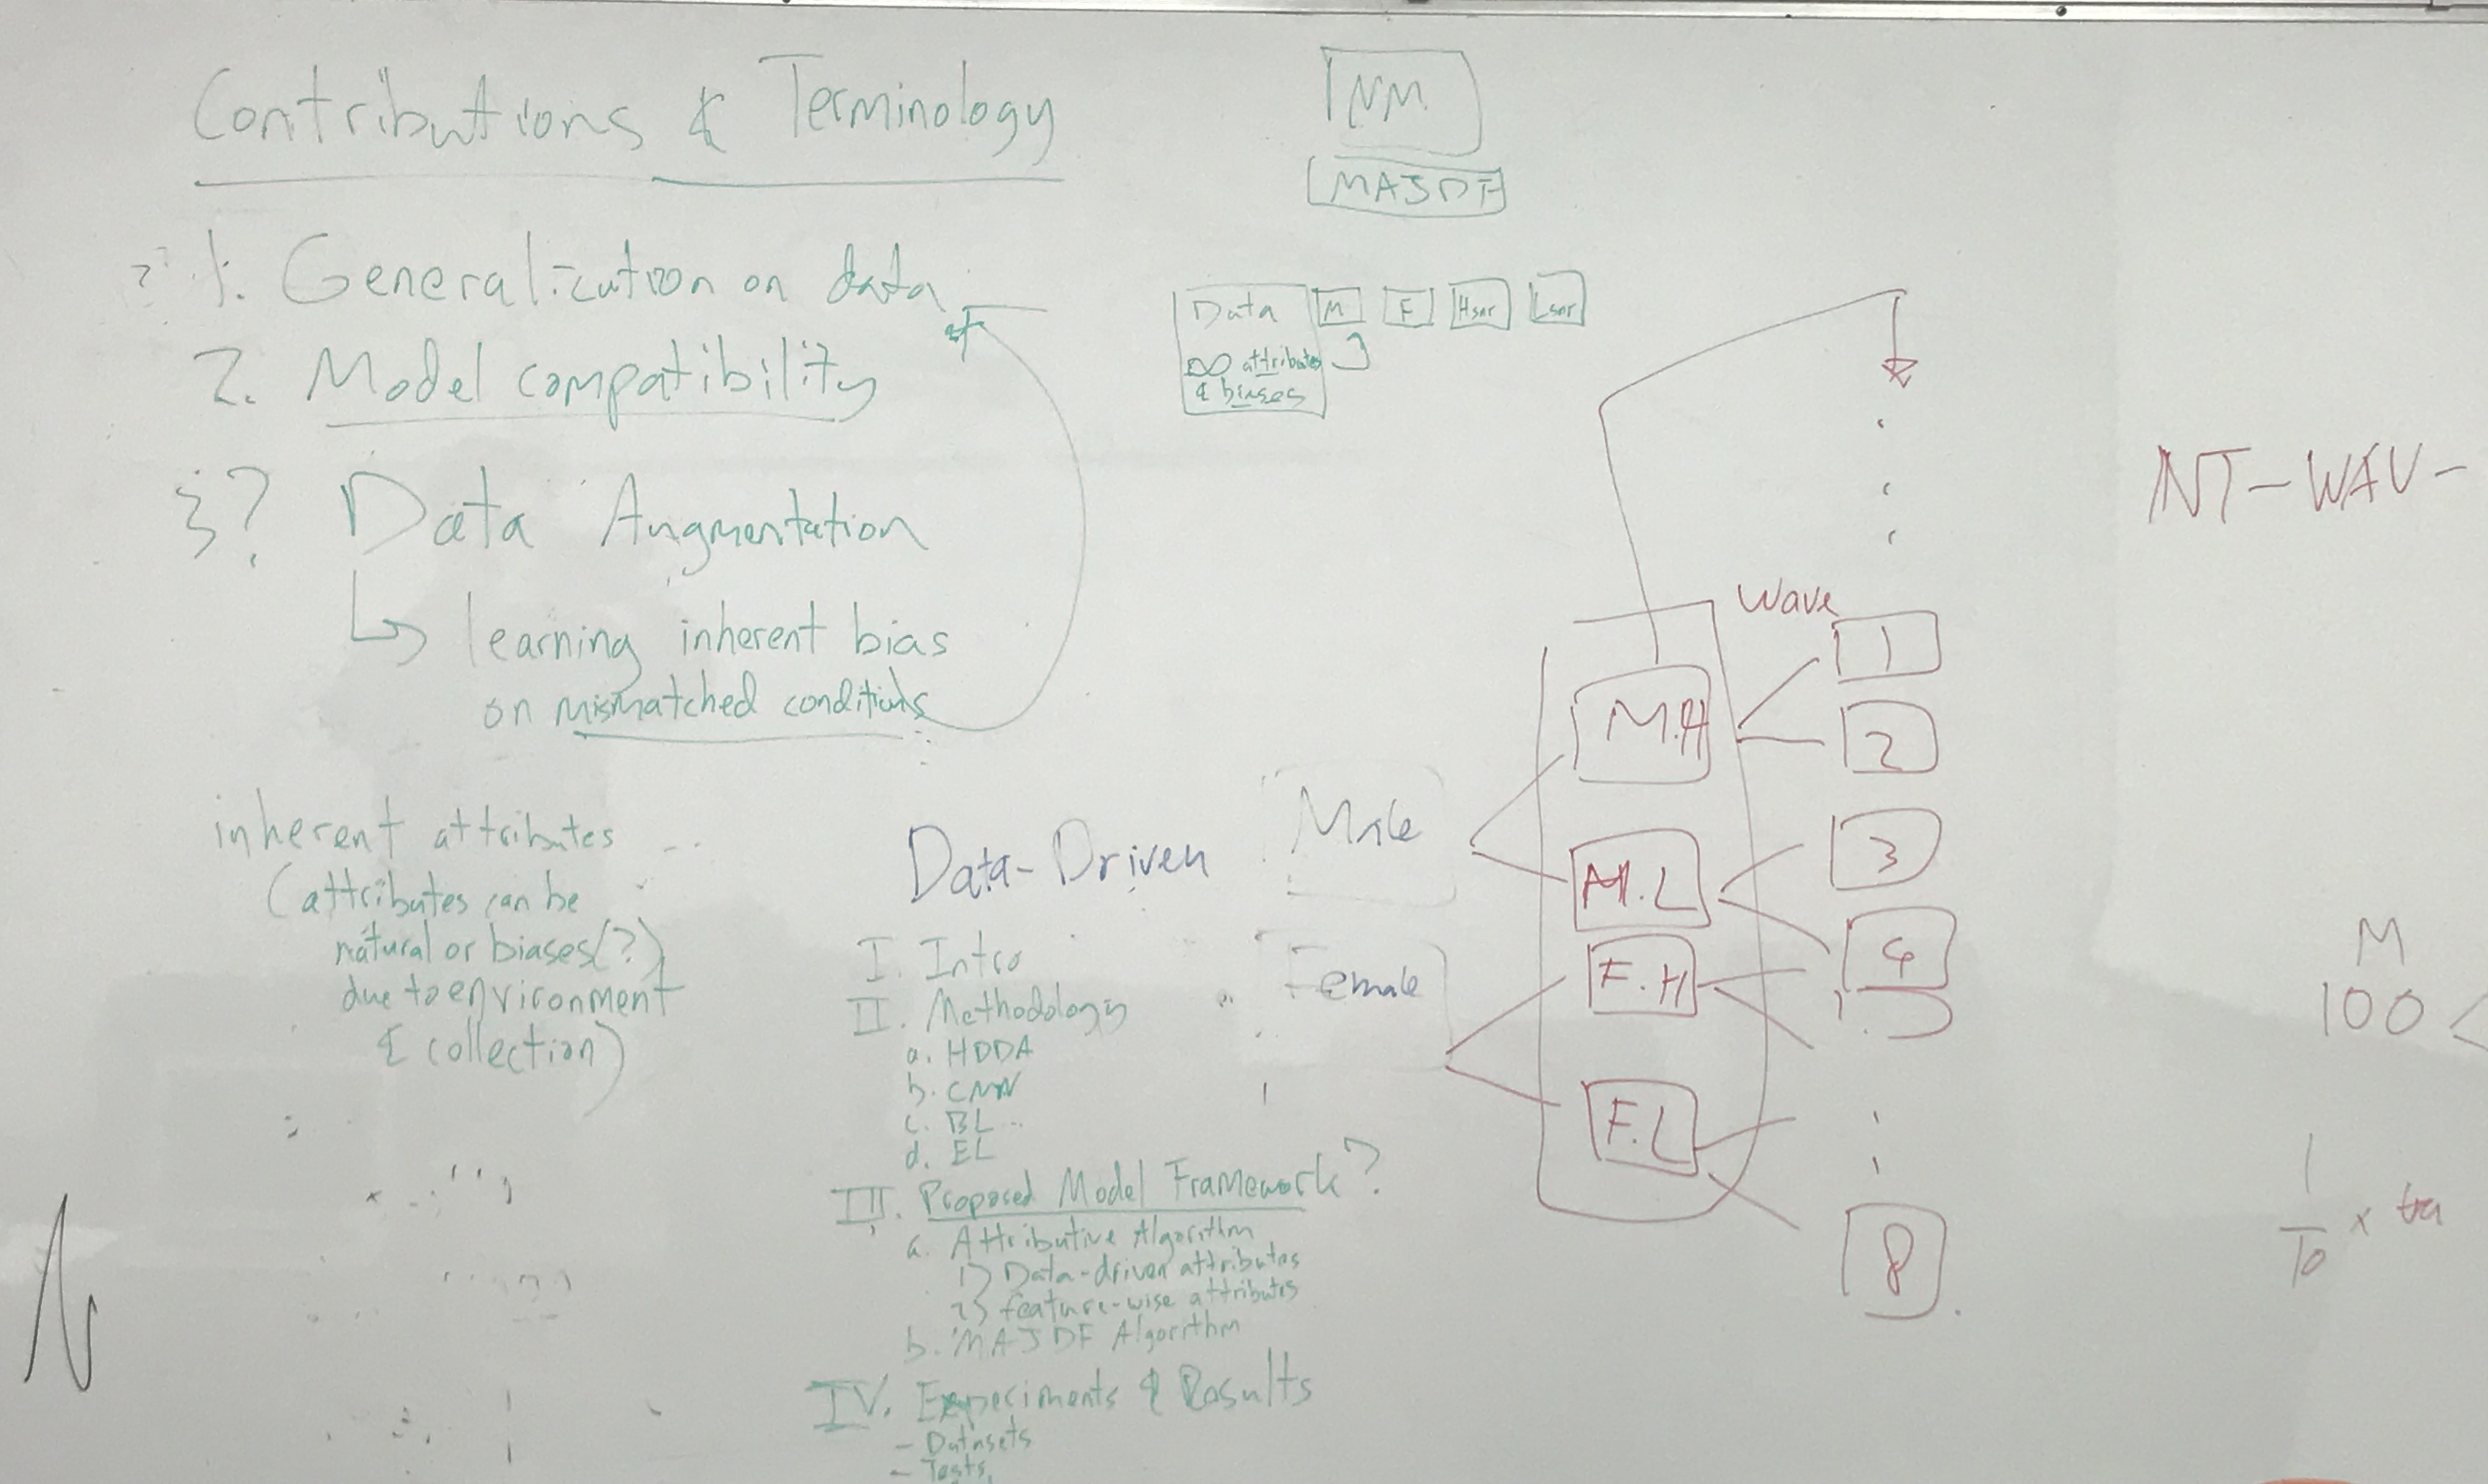 Contributions & Terminology
1. Generalization on data
2. Model compatibility
3? Data Augmentation
learning inherent bias
on mismatched conditions
inherent attributes
(attributes can be
natural or biases(?)
due to environment
& collection)
NM
MAJDF
Data M F Hsnr Lsnr
∞ attributes
& biases
Data-Driven
I. Intro
II. Methodology
a. HDDA
b. CNN
c. BL
d. EL
III. Proposed Model Framework?
a. Attributive Algorithm
1) Data-driven attributes
2) feature-wise attributes
b. MAJDF Algorithm
IV. Experiments & Results
- Datasets
- Tests
Male
Female
M.H
M.L
F.H
F.L
Wave
1
2
3
4
8
NT-WAV-
M
100
1
10 ×